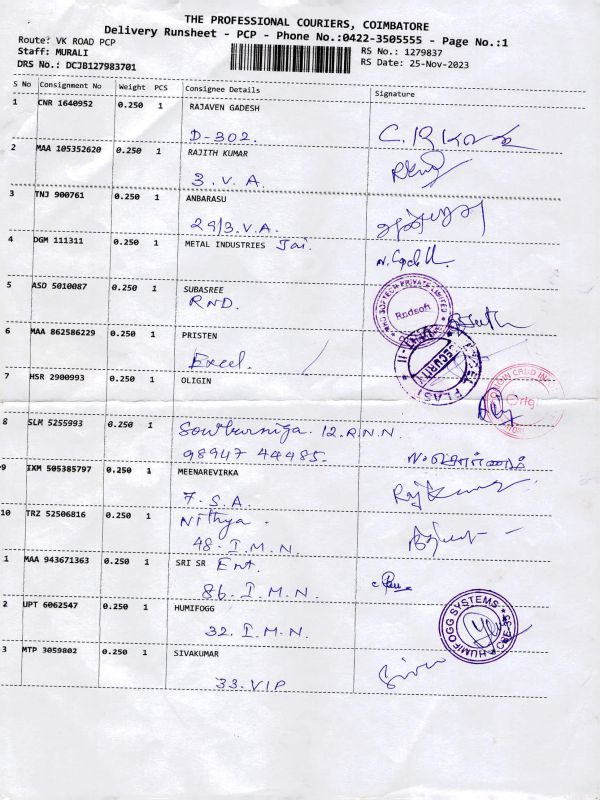 THE PROFESSIONAL COURIERS, COIMBATORE
Delivery Runsheet - PCP - Phone No.:0422-3505555 - Page No.:1
Route: VK ROAD PCP
Staff: MURALI
DRS No.: DCJB127983701
RS No.: 1279837
RS Date: 25-Nov-2023
S No Consignment No Weight PCS Consignee Details Signature
1 CNR 1640952 0.250 1 RAJAVEN GADESH
D-302.
2 MAA 105352620 0.250 1 RAJITH KUMAR
3.V.A.
3 TNJ 900761 0.250 1 ANBARASU
29/3.V.A.
4 DGM 111311 0.250 1 METAL INDUSTRIES Jai.
5 ASD 5010087 0.250 1 SUBASREE
RND.
Rndsoft
6 MAA 862586229 0.250 1 PRISTEN
Excel.
SECURITY
7 HSR 2900993 0.250 1 OLIGIN
8 SLM 5255993 0.250 1 Sowburniya. 12.R.N.N.
98947 44485.
9 IXM 505385797 0.250 1 MEENAREVIRKA
7. S.A. Rajkumar
10 TRZ 52506816 0.250 1 Nithya.
48. I.M.N.
1 MAA 943671363 0.250 1 SRI SR Ent.
86. I.M.N.
2 UPT 6062547 0.250 1 HUMIFOGG
32. I.M.N.
HUMIFOGG SYSTEMS
3 MTP 3059802 0.250 1 SIVAKUMAR
33.VIP